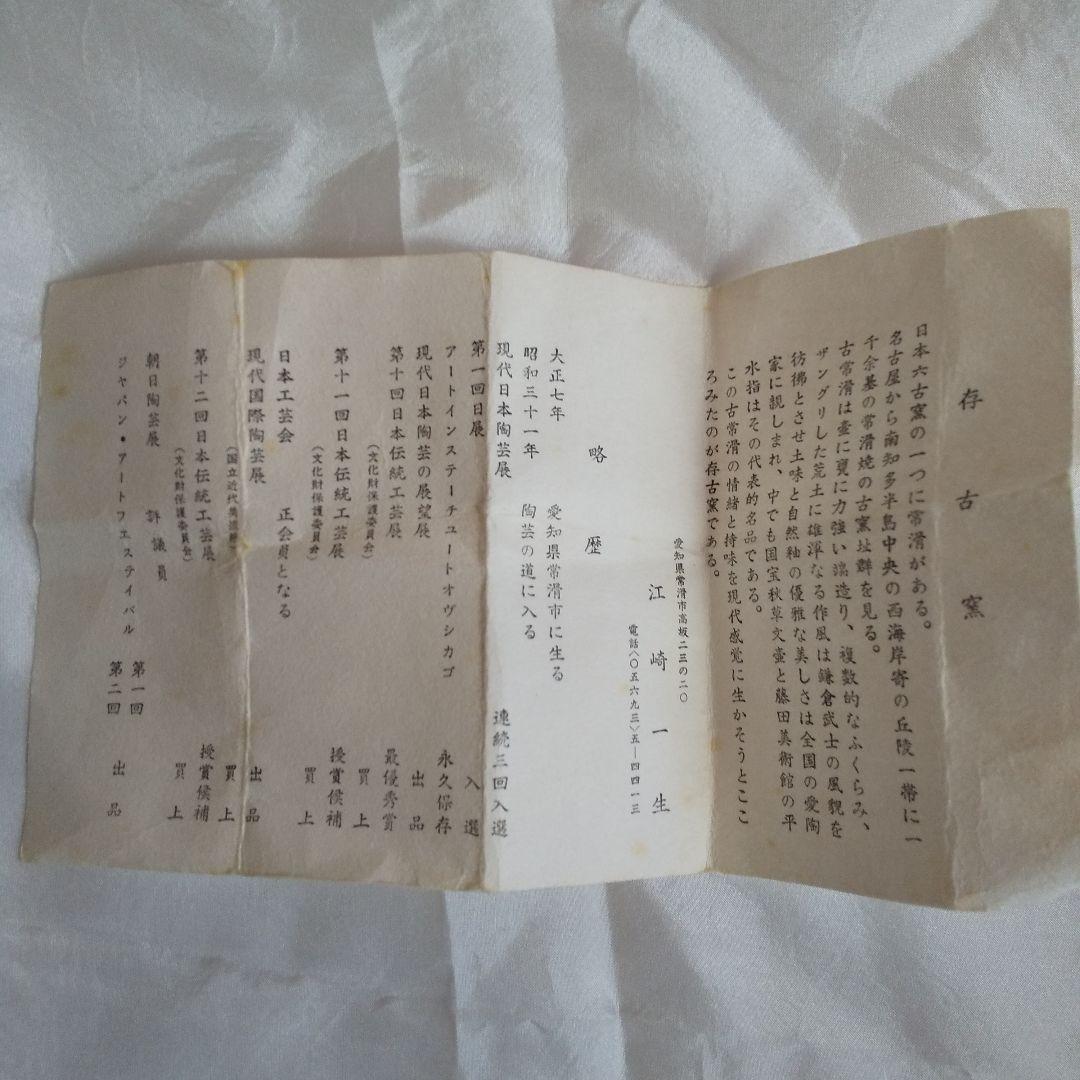 存古窯
日本六古窯の一つに常滑がある。
名古屋から南知多半島中央の西海岸寄の丘陵一帯に一
千余基の常滑焼の古窯址群を見る。
古常滑は壷に甕に力強い端造り、複数的なふくらみ、
ザングリした荒土に雄渾なる作風は鎌倉武士の風貌を
彷彿とさせ土味と自然釉の優雅な美しさは全国の愛陶
家に親しまれ、中でも国宝秋草文壷と藤田美術館の平
水指はその代表的名品である。
この古常滑の情緒と持味を現代感覚に生かそうとここ
ろみたのが存古窯である。
愛知県常滑市高坂二三の二〇
江崎一生
電話〈〇五六九三〉五―四四一三
略歴
大正七年 愛知県常滑市に生る
昭和三十一年 陶芸の道に入る
現代日本陶芸展 連続三回入選
第一回日展 入選
アートインステーチュートオヴシカゴ 永久保存
現代日本陶芸の展望展 出品
第十回日本伝統工芸展 最優秀賞
(文化財保護委員会) 買上
第十一回日本伝統工芸展 授賞候補
(文化財保護委員会) 買上
日本工芸会 正会員となる
現代国際陶芸展 出品
(国立近代美術館) 買上
第十二回日本伝統工芸展 授賞候補
(文化財保護委員会) 買上
朝日陶芸展 評議員
ジャパン・アートフェスティバル 第一回
第二回 出品